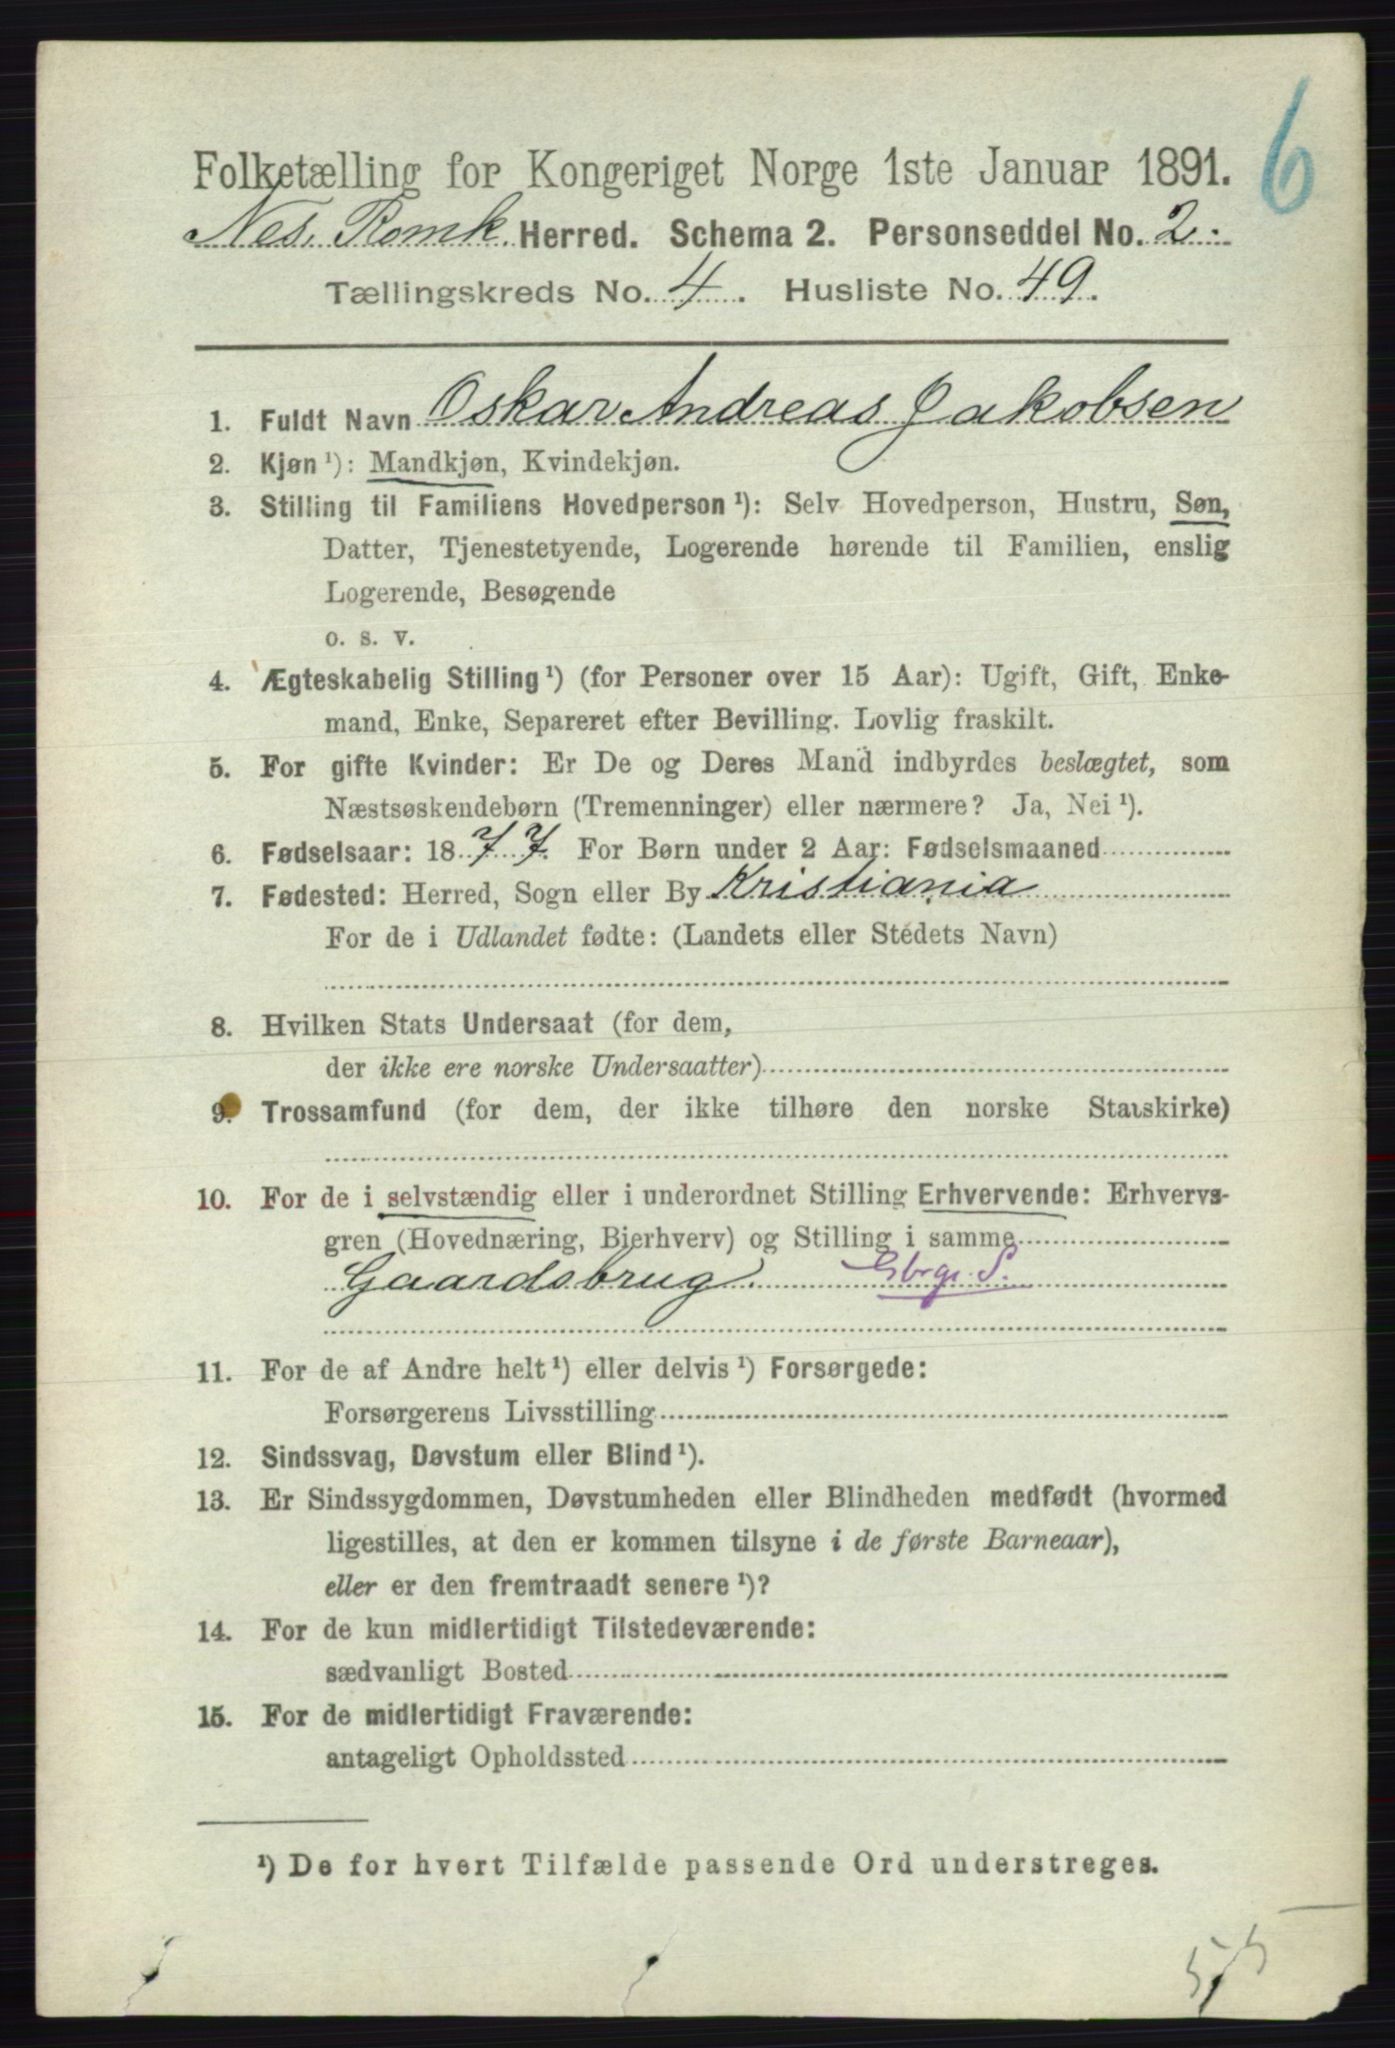 6
Folketælling for Kongeriget Norge 1ste Januar 1891.
Nes, Romk. Herred. Schema 2. Personseddel No. 2.
Tællingskreds No. 4. Husliste No. 49.
1. Fuldt Navn Oskar Andreas Jakobsen
2. Kjøn ¹): Mandkjøn, Kvindekjøn.
3. Stilling til Familiens Hovedperson ¹): Selv Hovedperson, Hustru, Søn,
Datter, Tjenestetyende, Logerende hørende til Familien, enslig
Logerende, Besøgende
o. s. v.
4. Ægteskabelig Stilling ¹) (for Personer over 15 Aar): Ugift, Gift, Enke-
mand, Enke, Separeret efter Bevilling. Lovlig fraskilt.
5. For gifte Kvinder: Er De og Deres Mand indbyrdes beslægtet, som
Næstsøskendebørn (Tremenninger) eller nærmere? Ja, Nei ¹).
6. Fødselsaar: 1877. For Børn under 2 Aar: Fødselsmaaned
7. Fødested: Herred, Sogn eller By Kristiania
For de i Udlandet fødte: (Landets eller Stedets Navn)
8. Hvilken Stats Undersaat (for dem,
der ikke ere norske Undersaatter)
9. Trossamfund (for dem, der ikke tilhøre den norske Statskirke)
10. For de i selvstændig eller i underordnet Stilling Erhvervende: Erhvervs-
gren (Hovednæring, Bierhverv) og Stilling i samme
Gaardsbrug. Gbrgr. S.
11. For de af Andre helt ¹) eller delvis ¹) Forsørgede:
Forsørgerens Livsstilling
12. Sindssvag, Døvstum eller Blind ¹).
13. Er Sindssygdommen, Døvstumheden eller Blindheden medfødt (hvormed
ligestilles, at den er kommen tilsyne i de første Barneaar),
eller er den fremtraadt senere ¹)?
14. For de kun midlertidigt Tilstedeværende:
sædvanligt Bosted
15. For de midlertidigt Fraværende:
antageligt Opholdssted
¹) De for hvert Tilfælde passende Ord understreges.